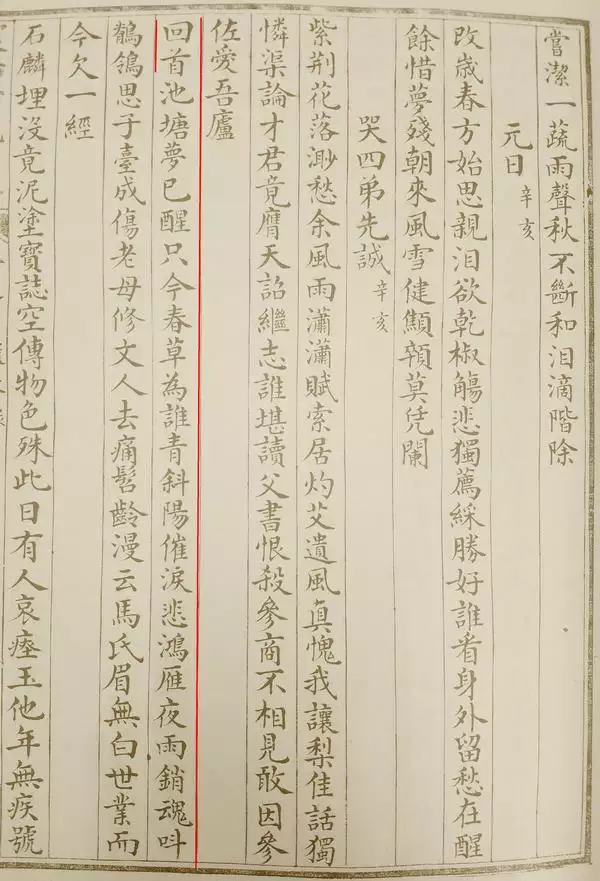 嘗潔一蔬雨聲秋不斷和泪滴階除
元日 辛亥
改歲春方始思親泪欲乾椒觴悲獨薦綵勝好誰看身外留愁在醒
餘惜夢殘朝來風雪健顦顇莫凭闌
哭四弟先誠 辛亥
紫荆花落渺愁余風雨瀟瀟賦索居灼艾遺風真愧我讓梨佳話獨
憐渠論才君竟膺天詔繼志誰堪讀父書恨殺參商不相見敢因參
佐愛吾廬
回首池塘夢已醒只今春草為誰青斜陽催淚悲鴻雁夜雨銷魂叫
鶺鴒思子臺成傷老母修文人去痛髫齡漫云馬氏眉無白世業而
今欠一經
石麟埋没竟泥塗寶誌空傳物色殊此日有人哀瘞玉他年無疾號